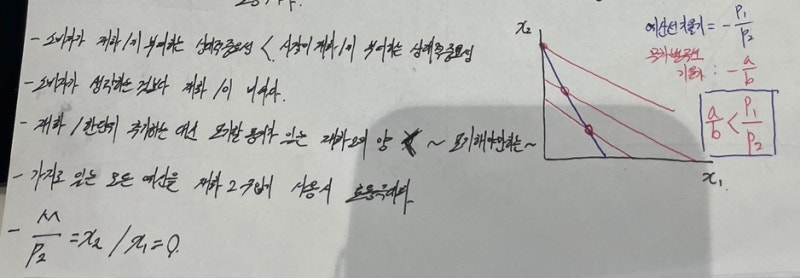 - 소비자가 재화 1에 부여하는 상대적중요성 < 시장이 재화 1에 부여하는 상대적중요성
- 소비자가 생각하는 것보다 재화 1이 비싸다.
- 재화 1 한단위 추가하는 대신 포기할 용의가 있는 재화2의 양 < ~ 포기해야만하는 ~
- 가지고 있는 모든 예산을 재화 2 구입에 사용시 효용극대화.
- M/P₂ = x₂ / x₁ = 0.
x₂
x₁
예산선 기울기 = - P₁/P₂
무차별곡선 기울기 : - a/b
a/b < P₁/P₂